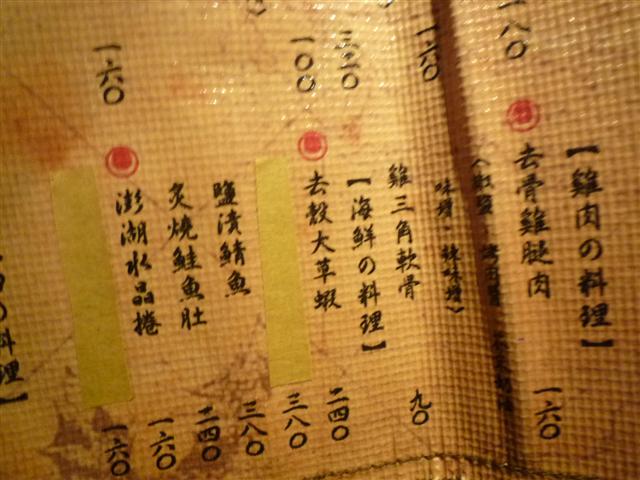 八〇
一六〇
三二〇
一〇〇
一六〇
【雞肉の料理】
去骨雞腿肉 一六〇
味增、辣味增)
雞三角軟骨 九〇
【海鮮の料理】
去殼大草蝦 二四〇
三八〇
鹽漬鯖魚 三八〇
炙燒鮭魚肚 二四〇
澎湖水晶捲 一六〇
一六〇
の料理】